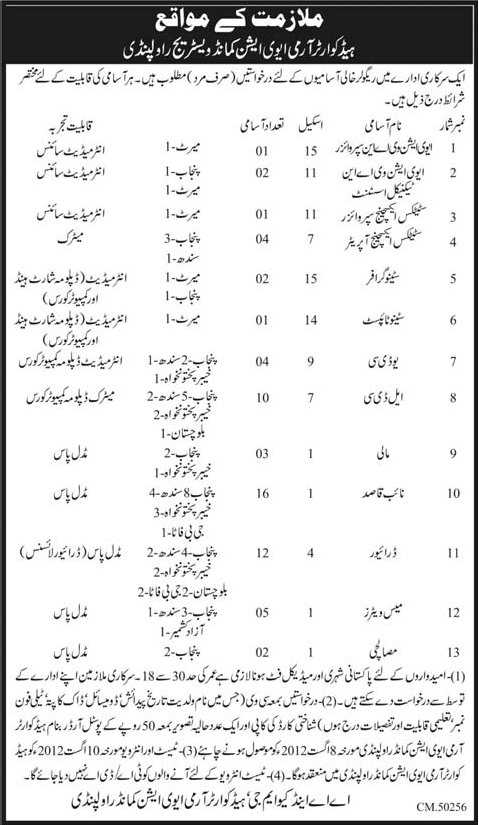 ملازمت کے مواقع
ہیڈ کوارٹر آرمی ایوی ایشن کمانڈ ویسٹریج راولپنڈی
ایک سرکاری ادارے میں ریگولر خالی آسامیوں کے لئے درخواستیں (صرف مرد) مطلوب ہیں۔ ہر آسامی کی قابلیت کے لئے مختصر
شرائط درج ذیل ہیں۔
نمبر شمار نام آسامی اسکیل تعداد آسامی قابلیت تجربہ
1 ایوی ایشن وی اے این سپروائزر 15 01 میرٹ-1 انٹرمیڈیٹ سائنس
2 ایوی ایشن وی اے این 11 02 پنجاب-1 انٹرمیڈیٹ سائنس
ٹیکنیکل اسسٹنٹ میرٹ-1
3 سٹیٹکس ایکسچینج سپروائزر 11 01 میرٹ-1 انٹرمیڈیٹ سائنس
4 سٹیٹکس ایکسچینج آپریٹر 7 04 پنجاب-3 میٹرک
سندھ-1
5 سٹینوگرافر 15 02 میرٹ-1 انٹرمیڈیٹ (ڈپلومہ شارٹ ہینڈ
پنجاب-1 اور کمپیوٹر کورس)
6 سٹینو ٹائپسٹ 14 01 میرٹ-1 انٹرمیڈیٹ (ڈپلومہ شارٹ ہینڈ
اور کمپیوٹر کورس)
7 یو ڈی سی 9 04 پنجاب-2 سندھ-1 انٹرمیڈیٹ ڈپلومہ کمپیوٹر کورس
خیبر پختونخواہ-1
8 ایل ڈی سی 7 10 پنجاب-5 سندھ-2 میٹرک ڈپلومہ کمپیوٹر کورس
خیبر پختونخواہ-2
بلوچستان-1
9 مالی 1 03 پنجاب-2 مڈل پاس
خیبر پختونخواہ-1
10 نائب قاصد 1 16 پنجاب 8 سندھ-4 مڈل پاس
خیبر پختونخواہ-3
جی بی فاٹا-1
11 ڈرائیور 4 12 پنجاب-4 سندھ-2 مڈل پاس (ڈرائیور لائسنس)
خیبر پختونخواہ-2
بلوچستان-2 جی بی فاٹا-2
12 میس ویٹرز 1 05 پنجاب-3 سندھ-1 مڈل پاس
آزاد کشمیر-1
13 مصالچی 1 02 پنجاب-2 مڈل پاس
(1)- امیدواروں کے لئے پاکستانی شہری اور میڈیکل فٹ ہونا لازمی ہے عمر کی حد 30 سے 18۔ سرکاری ملازمین اپنے ادارے کے
توسط سے درخواست دے سکتے ہیں۔ (2)- درخواستیں بمعہ سی وی (جس میں نام ولدیت تاریخ پیدائش، ڈومیسائل، ڈاک کا پتہ، ٹیلی فون
نمبر، تعلیمی قابلیت اور تفصیلات درج ہوں) شناختی کارڈ کی کاپی اور ایک عدد حالیہ تصویر بمعہ 50 روپے کے پوسٹل آرڈر بنام ہیڈ کوارٹر
آرمی ایوی ایشن کمانڈ راولپنڈی مورخہ 8 اگست 2012 کو موصول ہونے چاہئے (3)- ٹیسٹ اور انٹرویو مورخہ 10 اگست 2012 کو ہیڈ
کوارٹر آرمی ایوی ایشن کمانڈ راولپنڈی میں منعقد ہوگا۔ (4)- ٹیسٹ انٹرویو کے لئے آنے والوں کو ٹی اے/ڈی اے نہیں دیا جائے گا۔
اے اے اینڈ کیو ایم جی، ہیڈ کوارٹر آرمی ایوی ایشن کمانڈ راولپنڈی
CM.50256